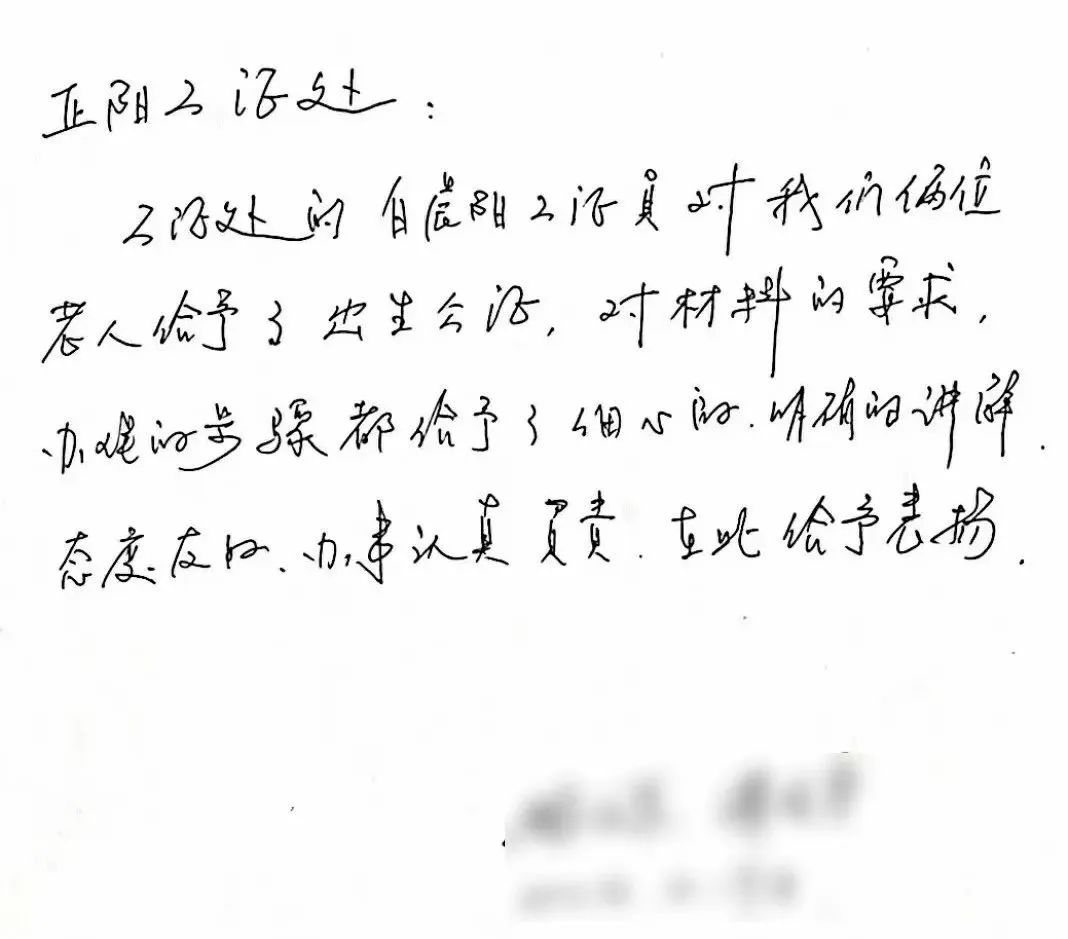 正阳公证处：
公证处的白晨阳公证员对我们俩位
老人给予了出生公证，对材料的要求，
办理的步骤都给予了细心的、明确的讲解.
态度友好、办事认真負責.在此给予表扬.